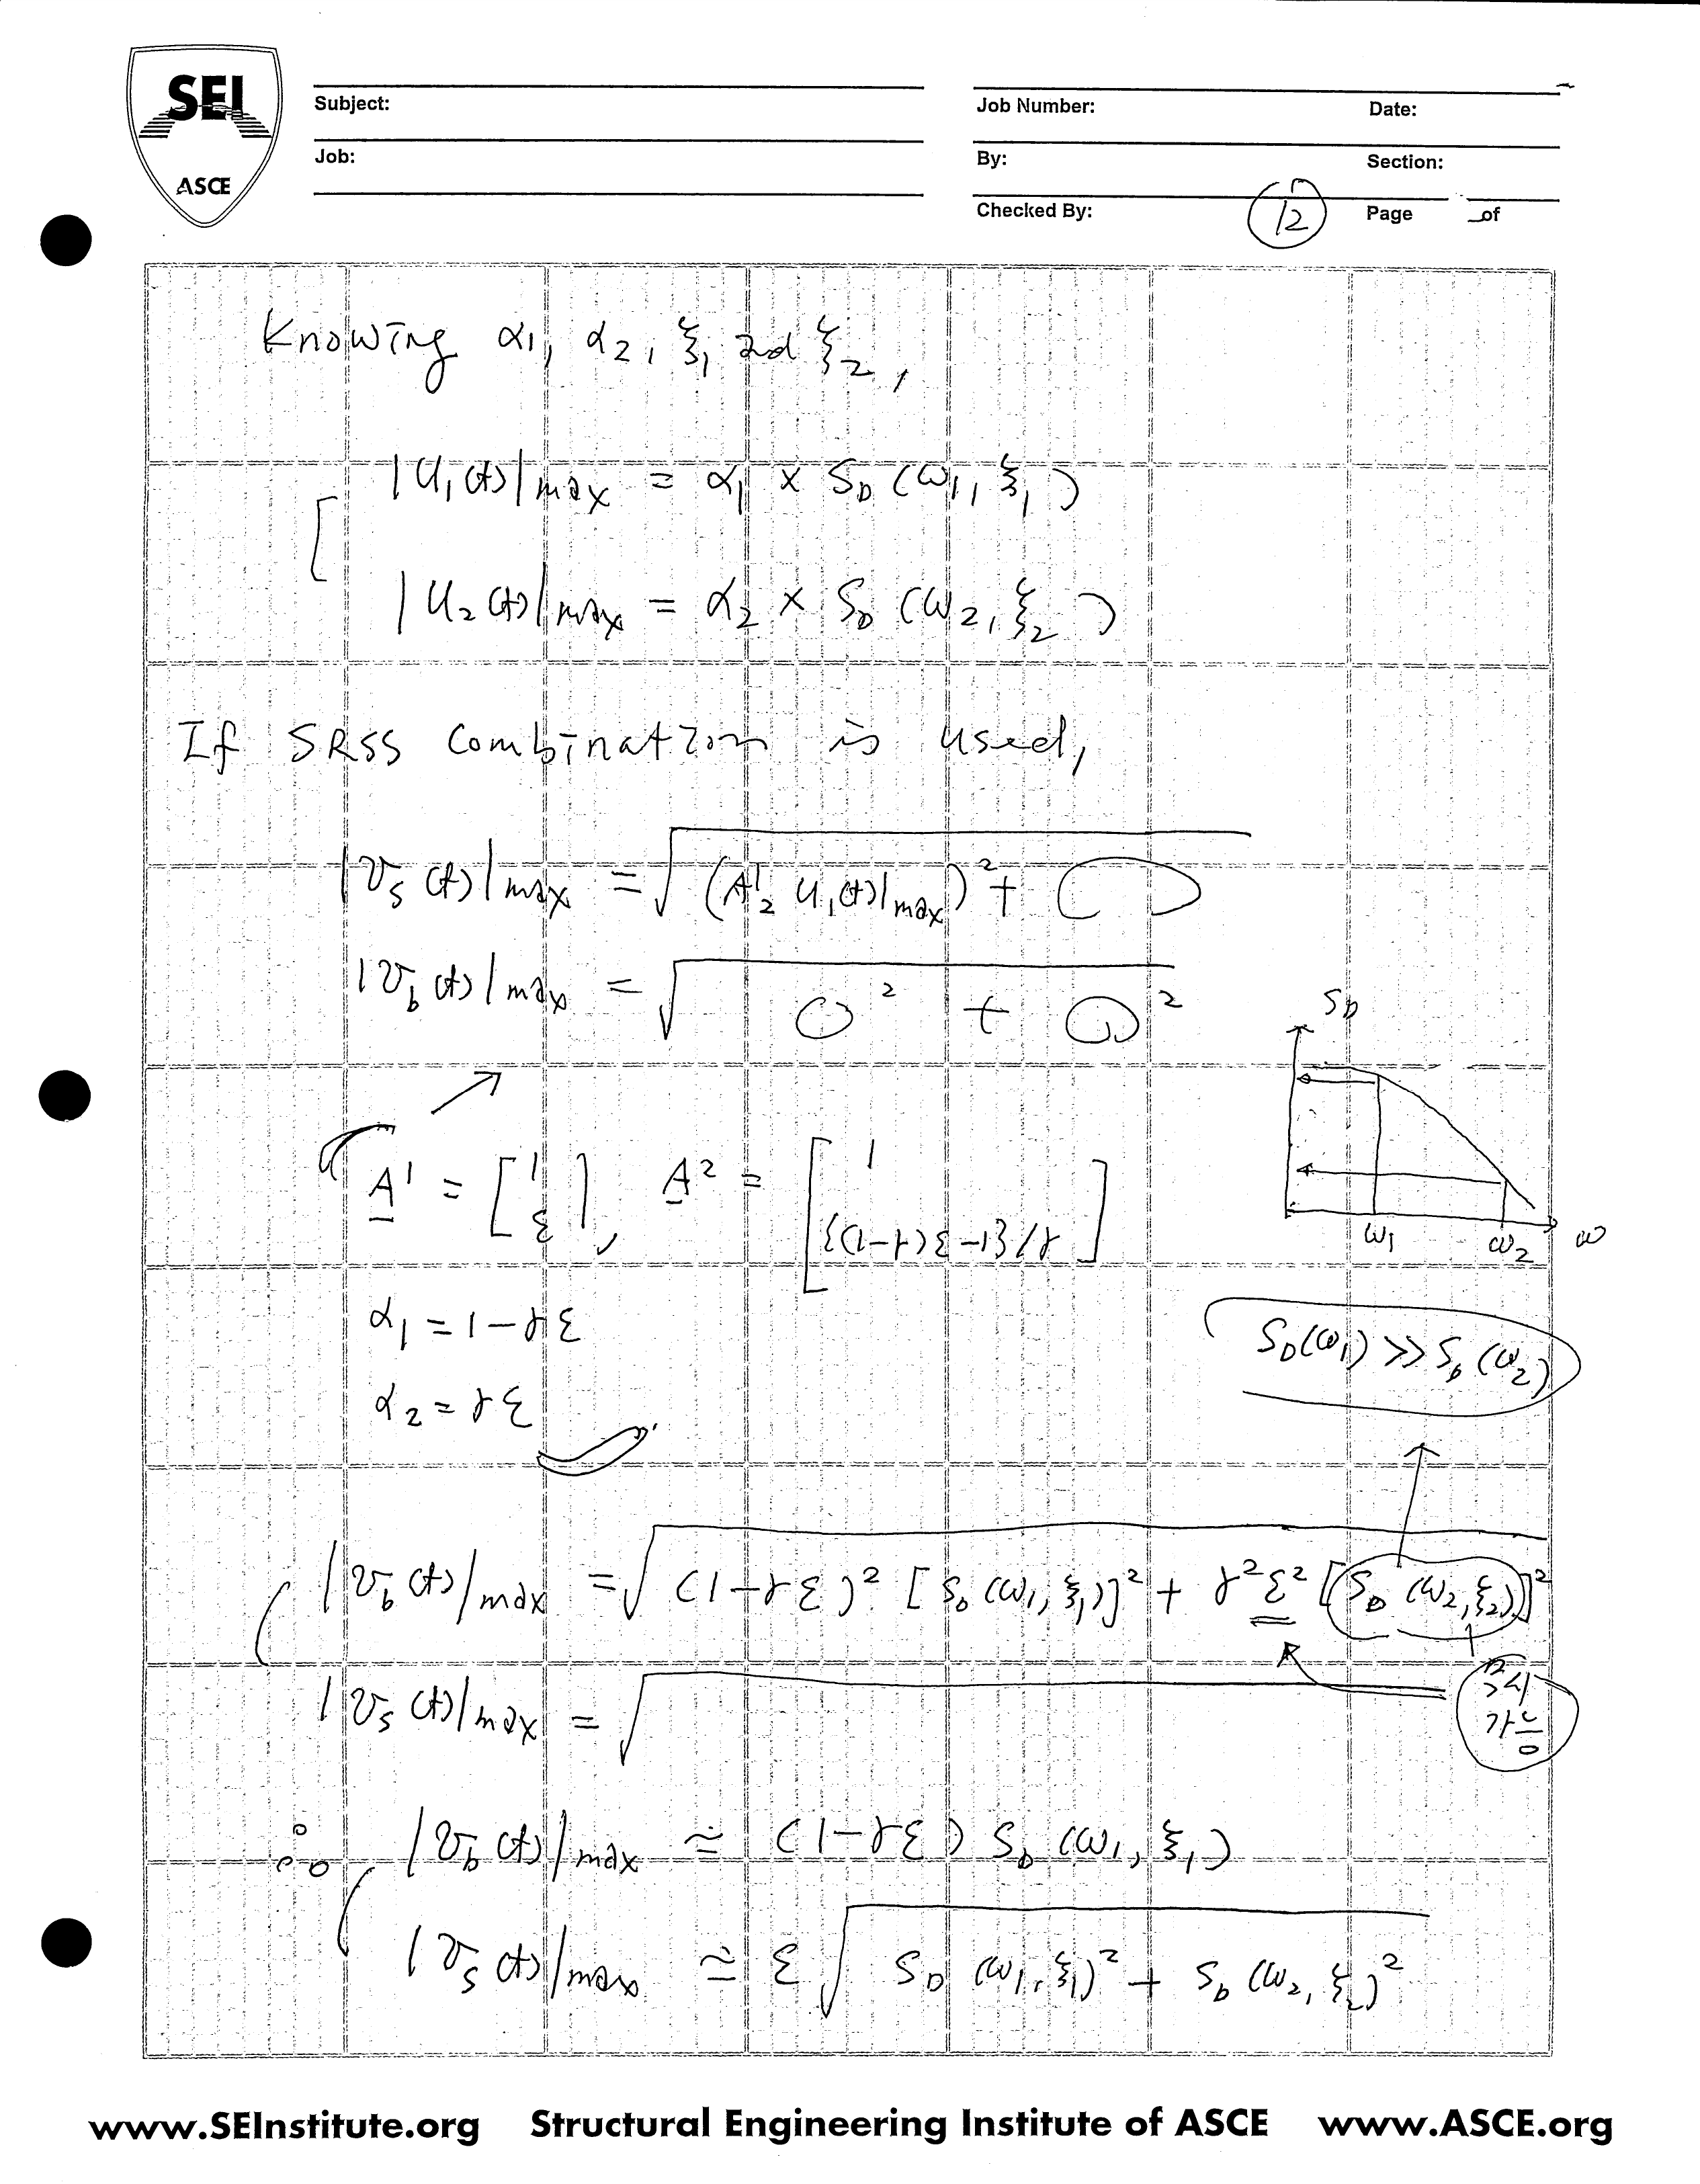 SEI
ASCE
Subject:
Job:
Job Number:
Date:
By:
Section:
Checked By:
12
Page
of
Knowing α1, α2, ξ1 and ξ2,
|U1(t)|max = α1 × SD (ω1, ξ1)
|U2(t)|max = α2 × SD (ω2, ξ2)
If SRSS combination is used,
|vs(t)|max = √((A¹2 U1(t)|max)² + ( ))
|vb(t)|max = √(○² + ○²)
SD
ω1
ω2
ω
A¹ = [1 ε], A² = [1 {(1-γ)ε-1}/γ]
α1 = 1-γε
α2 = γε
SD(ω1) >> SD(ω2)
|vb(t)|max = √((1-γε)² [SD(ω1, ξ1)]² + γ²ε² [SD(ω2, ξ2)]²)
|vs(t)|max = √
무시
가능
∴ |vb(t)|max ≃ (1-γε) SD (ω1, ξ1)
|vs(t)|max ≃ ε √(SD (ω1, ξ1)² + SD (ω2, ξ2)²)
www.SEInstitute.org Structural Engineering Institute of ASCE www.ASCE.org